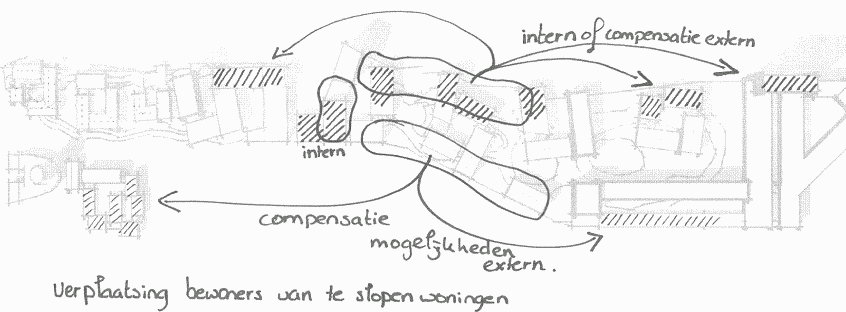 intern of compensatie extern
intern
compensatie
mogelijkheden
extern.
Verplaatsing bewoners van te slopen woningen